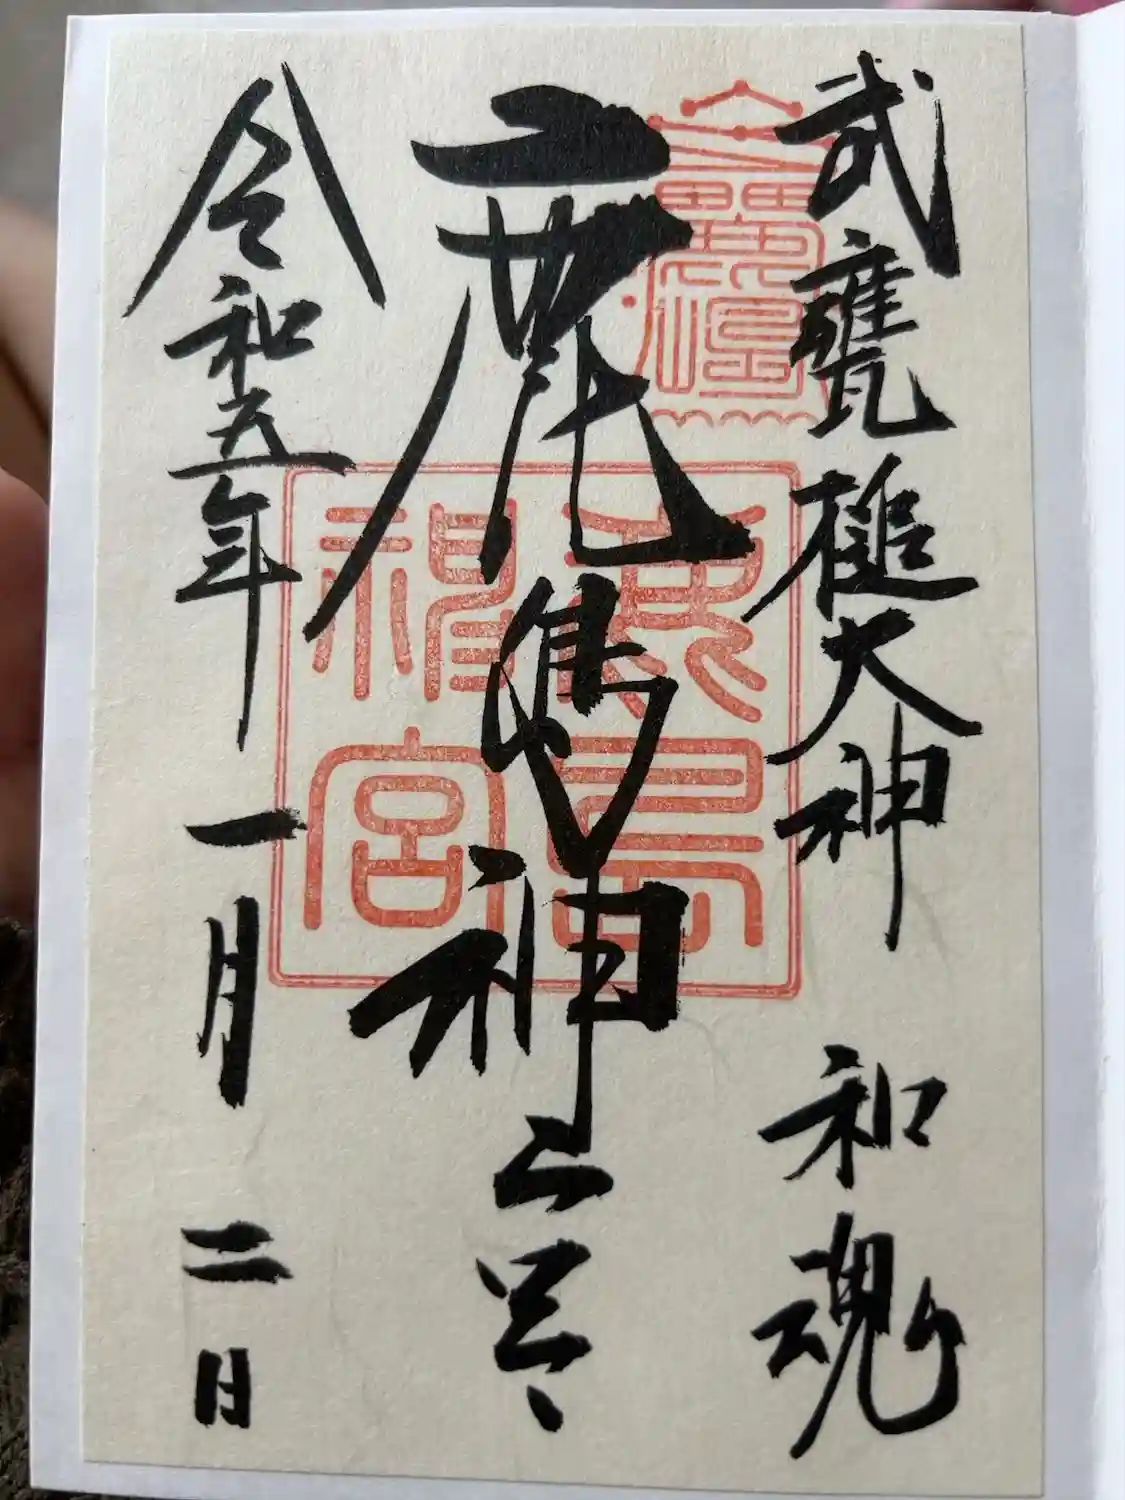 武甕槌大神 和魂
鹿島神宮
令和五年一月二日
鹿島
神宮